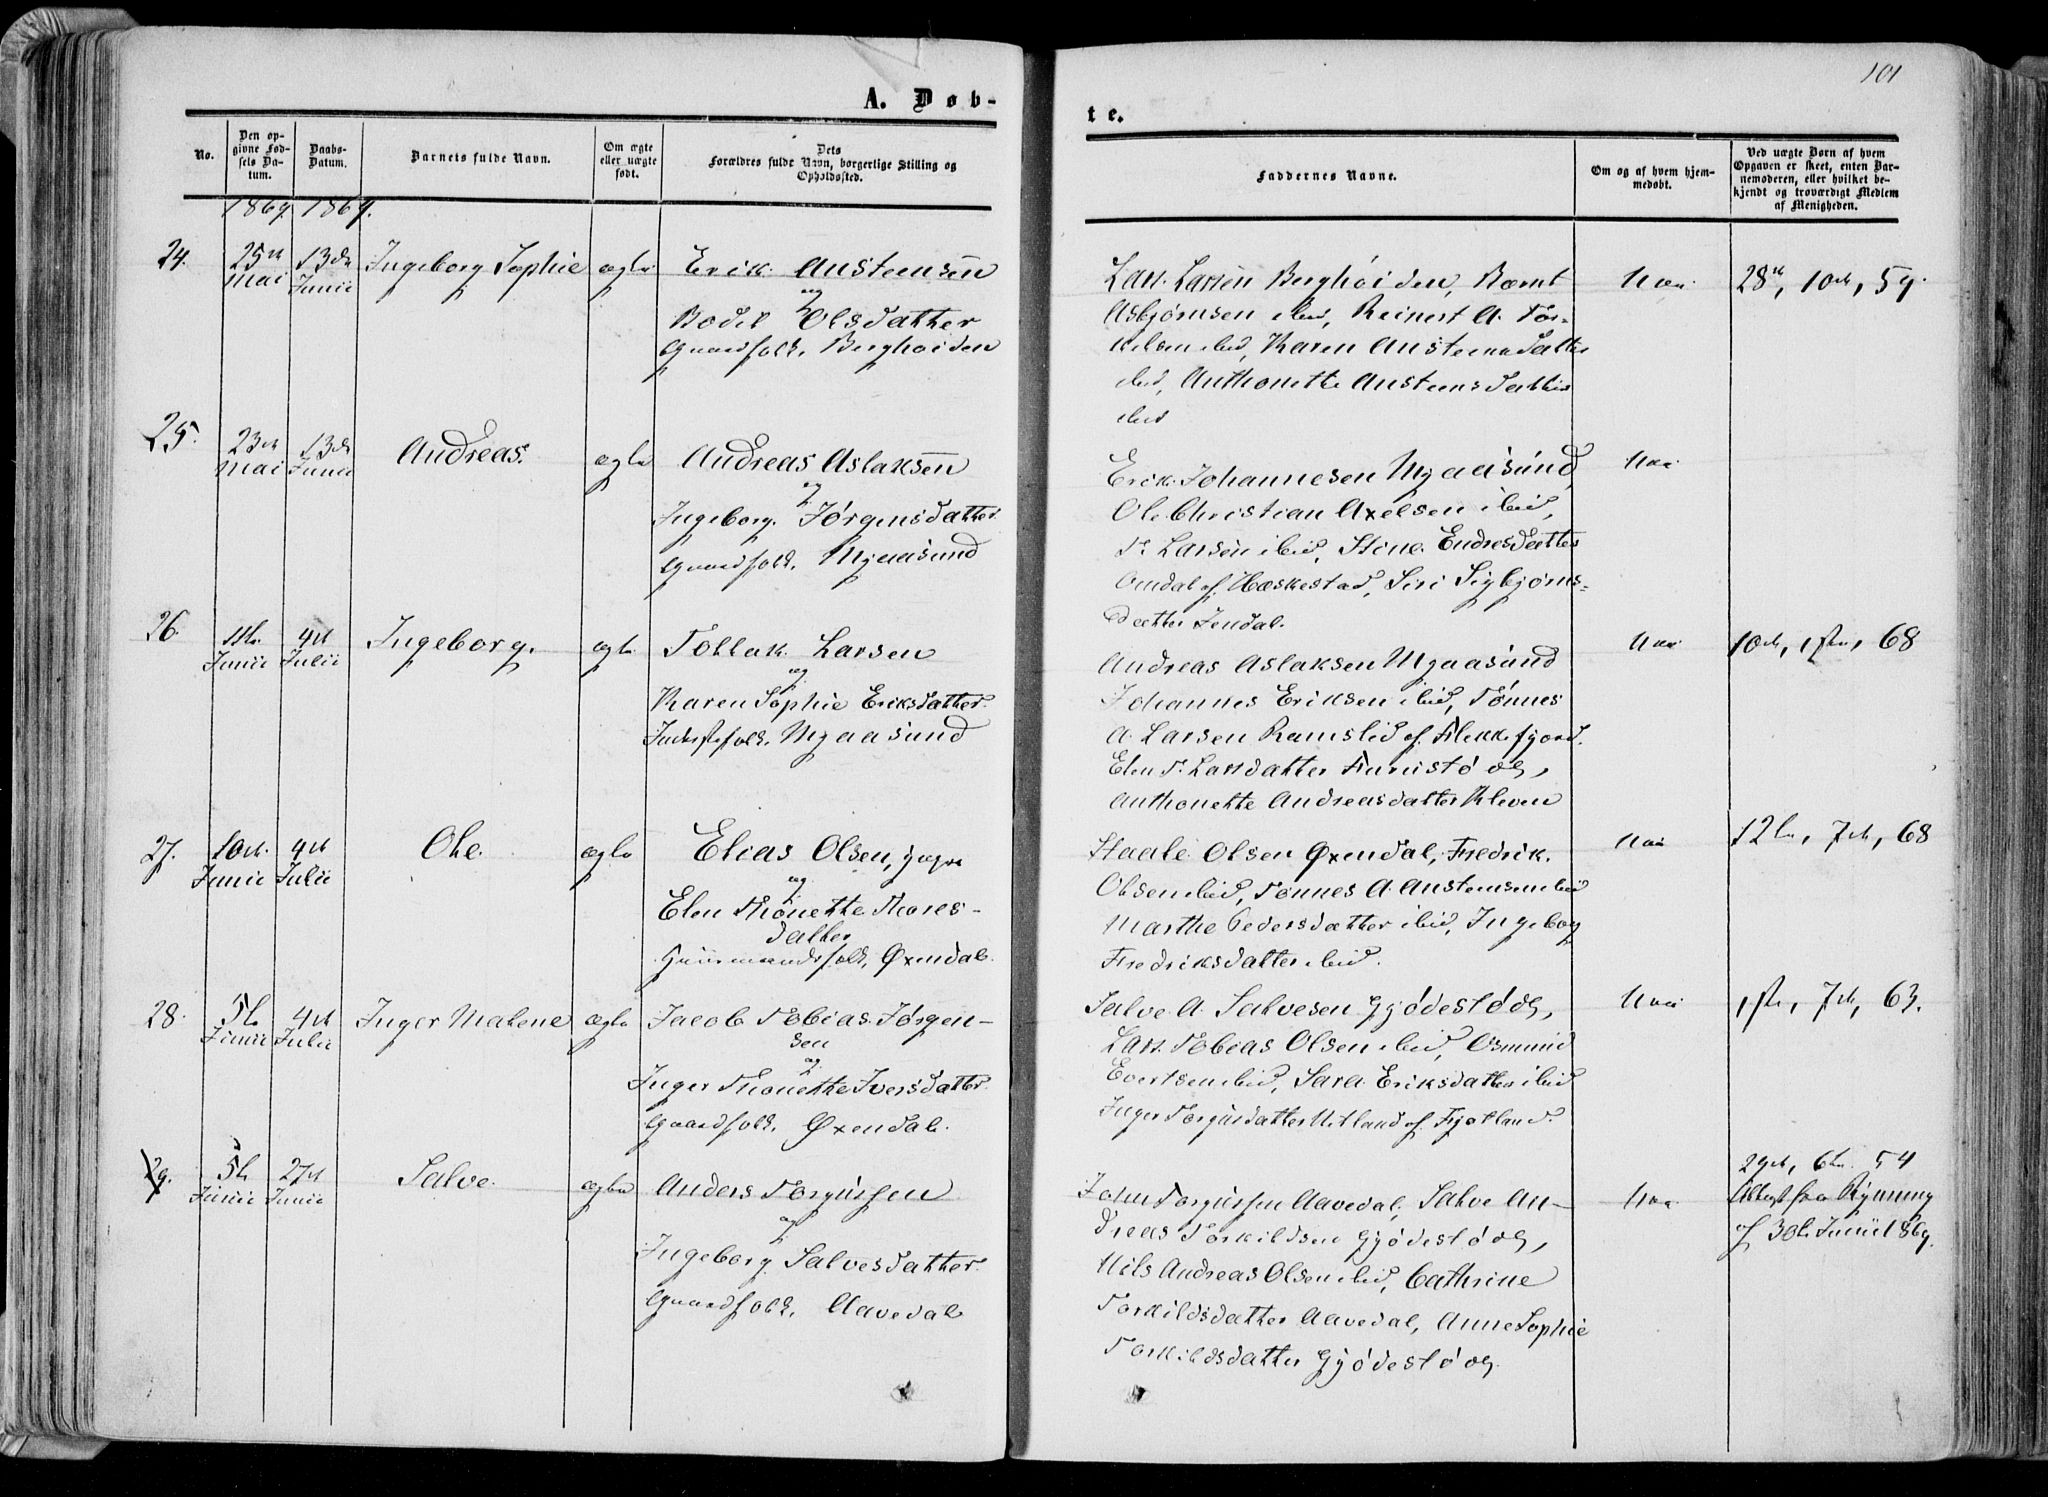 101
A. Døb-
te.
No.
Den op-
givne Fød-
sels Da-
tum.
Daabs-
Datum.
Barnets fulde Navn.
Om ægte
eller uægte
født.
Dets
Forældres fulde Navn, borgerlige Stilling og
Opholdssted.
Faddernes Navne.
Om og af hvem hjem-
medøbt.
Ved uægte Børn af hvem
Opgaven er skeet, enten Bar-
nemoderen, eller hvilket be-
kjendt og troværdigt Medlem
af Menigheden.
1869 1869.
24.
25de
Mai
13de
Junii
Ingeborg Sophie
ægte
Erik Austensen
og
Bodil Olsdatter
Gaardfolk, Berghøiden
Lars Larsen Berghøiden, Bernt
Asbjørnsen ibid, Reinert A. Tor-
kelsen ibid, Karen Austensdatter
ibid, Anthonette Austensdatter
ibid
Nei
28de, 10de, 59.
25.
23de
Mai
13de
Junii
Andreas.
ægte
Andreas Aslaksen
og
Ingeborg Jørgensdatter
Gaardfolk, Mgaasund
Erik Johannesen Mgaasund,
Ole Christian Axelsen ibid,
T. Larsen ibid, Stine Endresdatter
Omdal af Hæskestad, Siri Sigbjørns-
datter Jendal.
Nei
26.
11te
Junii
4de
Julii
Ingeborg.
ægte
Tollak Larsen
og
Karen Sophie Eriksdatter
Inderstefolk, Mgaasund
Andreas Aslaksen Mgaasund
Johannes Eriksen ibid, Tønnes
A. Larsen Ramslid af Flekkefjord.
Elen T. Larsdatter Furustøog,
Anthonette Andreasdatter Kleven
Nei
10de, 1ste, 68
27.
10de
Junii
4de
Julii
Ole.
ægte
Elias Olsen, yngre
og
Elen Thonette Thores-
datter
Huusmandsfolk, Øxendal.
Staale Olsen Øxendal, Fredrik
Olsen ibid, Tønnes A. Austensen ibid
Marthe Pedersdatter ibid, Ingeborg
Fredriksdatter ibid.
Nei
12te, 7de, 68
28.
5te
Junii
4de
Julii
Inger Malene
ægte
Jacob Tobias Jørgen-
sen
og
Inger Thonette Iversdatter
Gaardfolk, Øxendal.
Salve A. Salvesen Gjødestøog,
Lars Tobias Olsen ibid, Osmund
Evertsen ibid, Sara Eriksdatter ibid
Inger Torgusdatter Netland af Fjotland.
Nei
1ste, 7de, 63.
29.
5te
Junii
27de
Junii
Salve.
ægte
Anders Torgussen
og
Ingeborg Salvesdatter
Gaardfolk, Aavedal
John Torgussen Aavedal, Salve An-
dreas Torkildsen Gjødestøog,
Nils Andreas Olsen ibid, Cathrine
Torkildsdatter Aavedal, Anne Sophie
Torkildsdatter Gjødestøog.
Nei
29de, 6te, 54
Attest fra Rynning
af 30te Junii 1869.